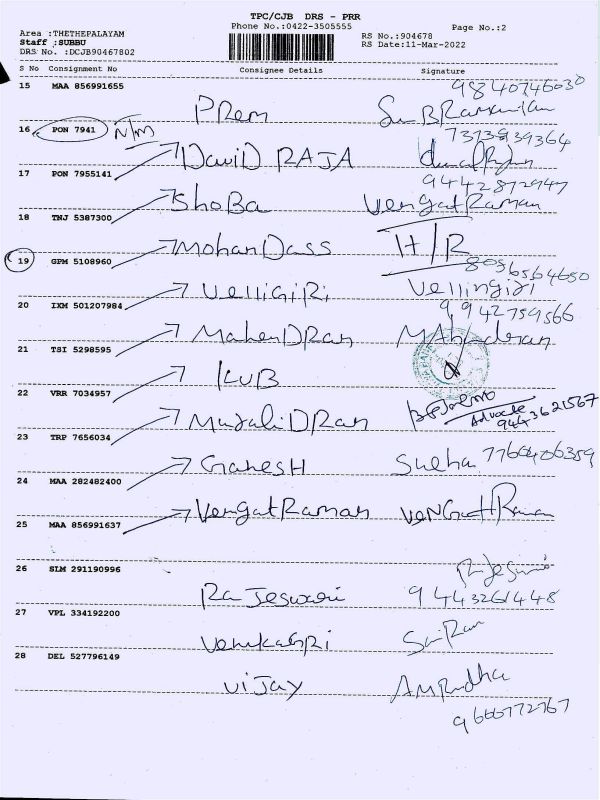 TPC/CJB DRS - PRR
Area :THETHEPALAYAM Phone No.:0422-3505555 Page No.:2
Staff :SUBBU RS No.:904678
DRS No. :DCJB90467802 RS Date:11-Mar-2022
S No Consignment No Consignee Details Signature
15 MAA 856991655 9840746030
Prem
16 PON 7941 N/M 7373939364
DaviD RAJA
17 PON 7955141 9442872947
ShoBa VengatRaman
18 TNJ 5387300
MohanDass H/R
19 GPM 5108960 8056564650
VelliGiRi Vellingiri
20 IXM 501207984 9942759566
MahenDRan MAhendran
21 TSI 5298595
KVB
22 VRR 7034957
MuraliDRan Advocate 9443621567
23 TRP 7656034
GaneSH Sudha 7760406359
24 MAA 282482400
VengatRaman VeNGatRaman
25 MAA 856991637
26 SLM 291190996
RaJeswari 9443261448
27 VPL 334192200
VenkaGiri
28 DEL 527796149
viJay Anuradha
9666772767